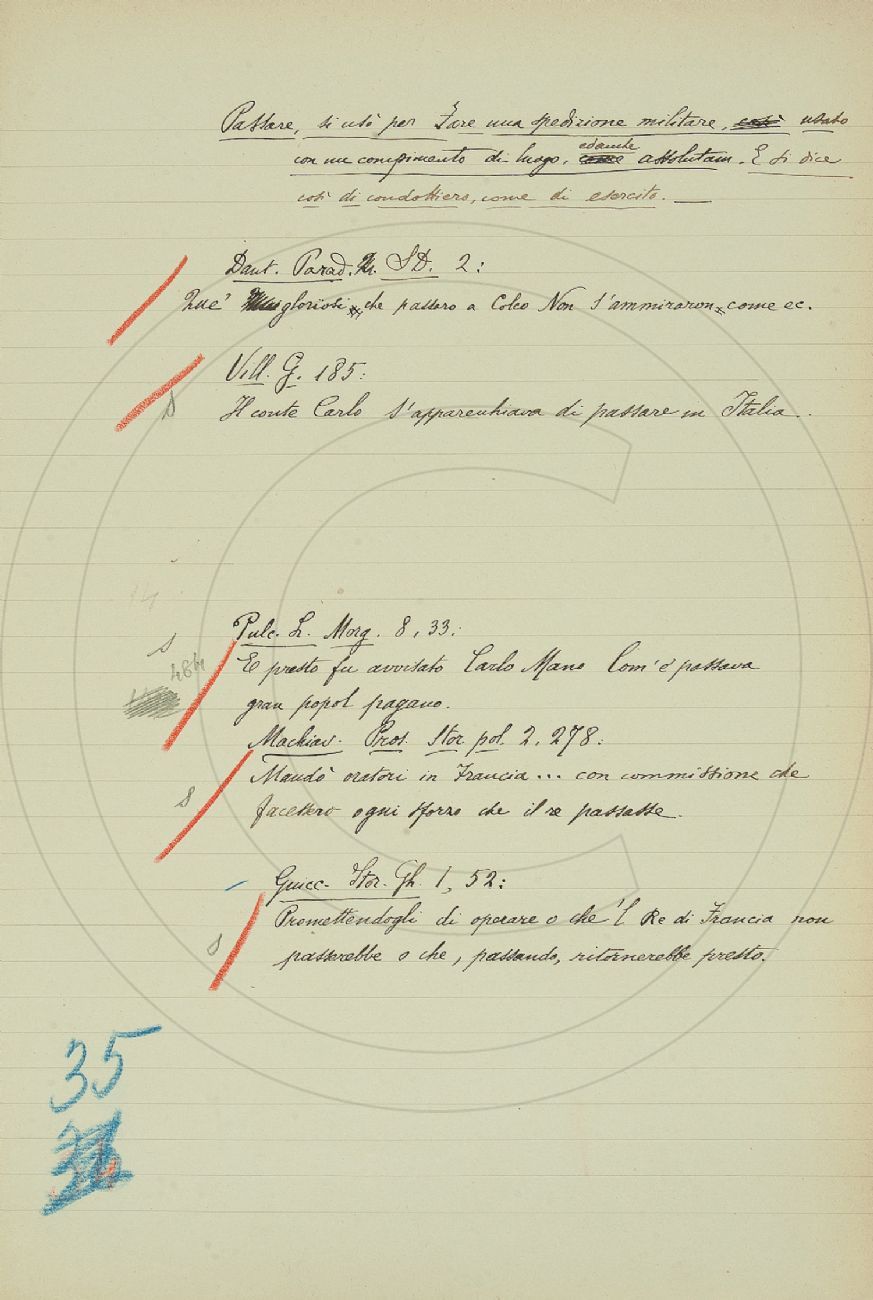 Passare, si usò per Fare una spedizione militare, così usato
con un compimento di luogo, come ed anche assolutam. E si dice
così di condottiero, come di esercito. —
Dant. Parad. SD. 2:
Que' gloriosi che passaro a Colco Non s'ammiraron, come ec.
Vill. G. 185:
S
Il conte Carlo s'apparecchiava di passare in Italia.
14
Pulc. L. Morg. 8, 33:
S
E presto fu avvisato Carlo Mano Com' e' passava
gran popol pagano.
Machiav. Pros. Stor. pol. 2. 278:
Mandò oratori in Francia... con commissione che
S
facessero ogni sforzo che il re passasse.
Guicc. Stor. Gh. 1, 52:
Promettendogli di operare o che 'l Re di Francia non
S
passerebbe o che, passando, ritornerebbe presto.
35